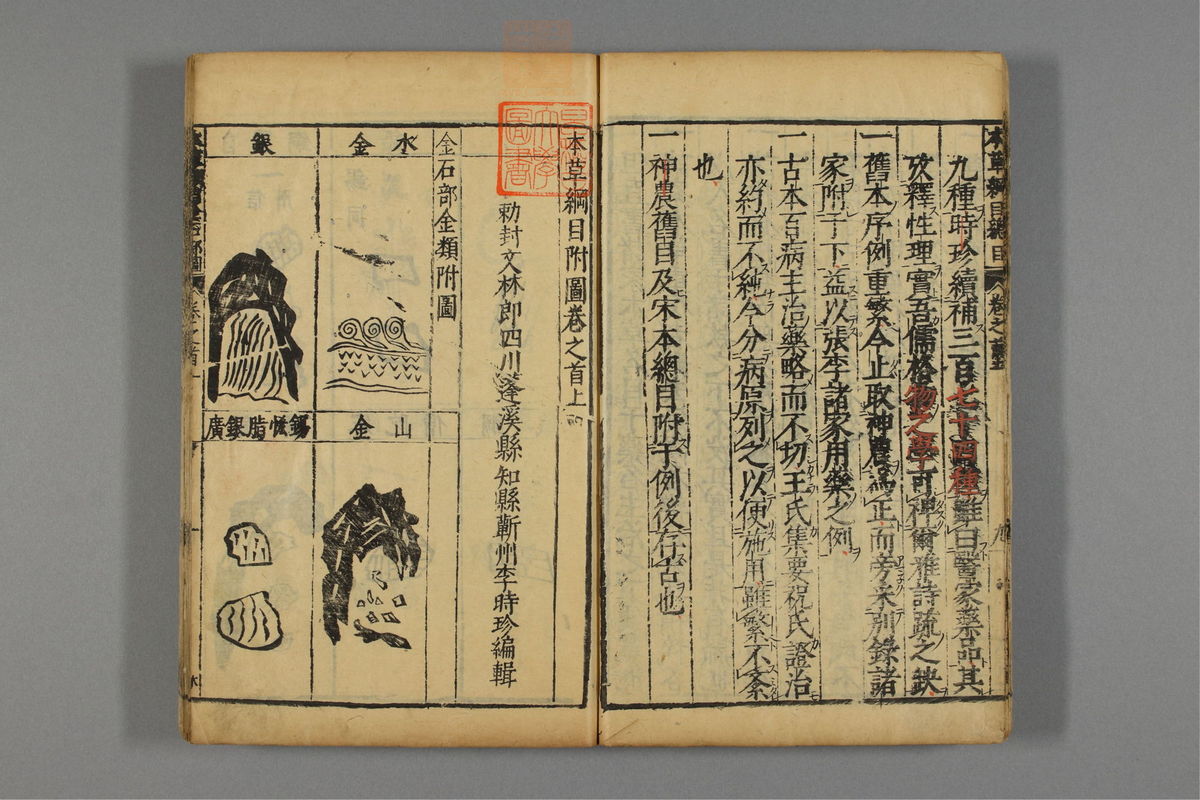 本草綱目總目 卷之首
九種時珍續補三百七十四種雖曰醫家藥品其
攷釋性理實吾儒格物之學可裨爾雅詩疏之缺
一舊本序例重繁今止取神農爲正而旁采別錄諸
家附于下益以張李諸家用藥之例
一古本百病主治藥略而不切王氏集要祝氏證治
亦約而不純今分病原列之以便施用雖繁不紊
也
一神農舊目及宋本總目附于例後存古也
本草綱目附圖卷之首上
勅封文林郎四川蓬溪縣知縣蘄州李時珍編輯
金石部金類附圖
水金
銀
山金
錫恡脂銀廣
圖書